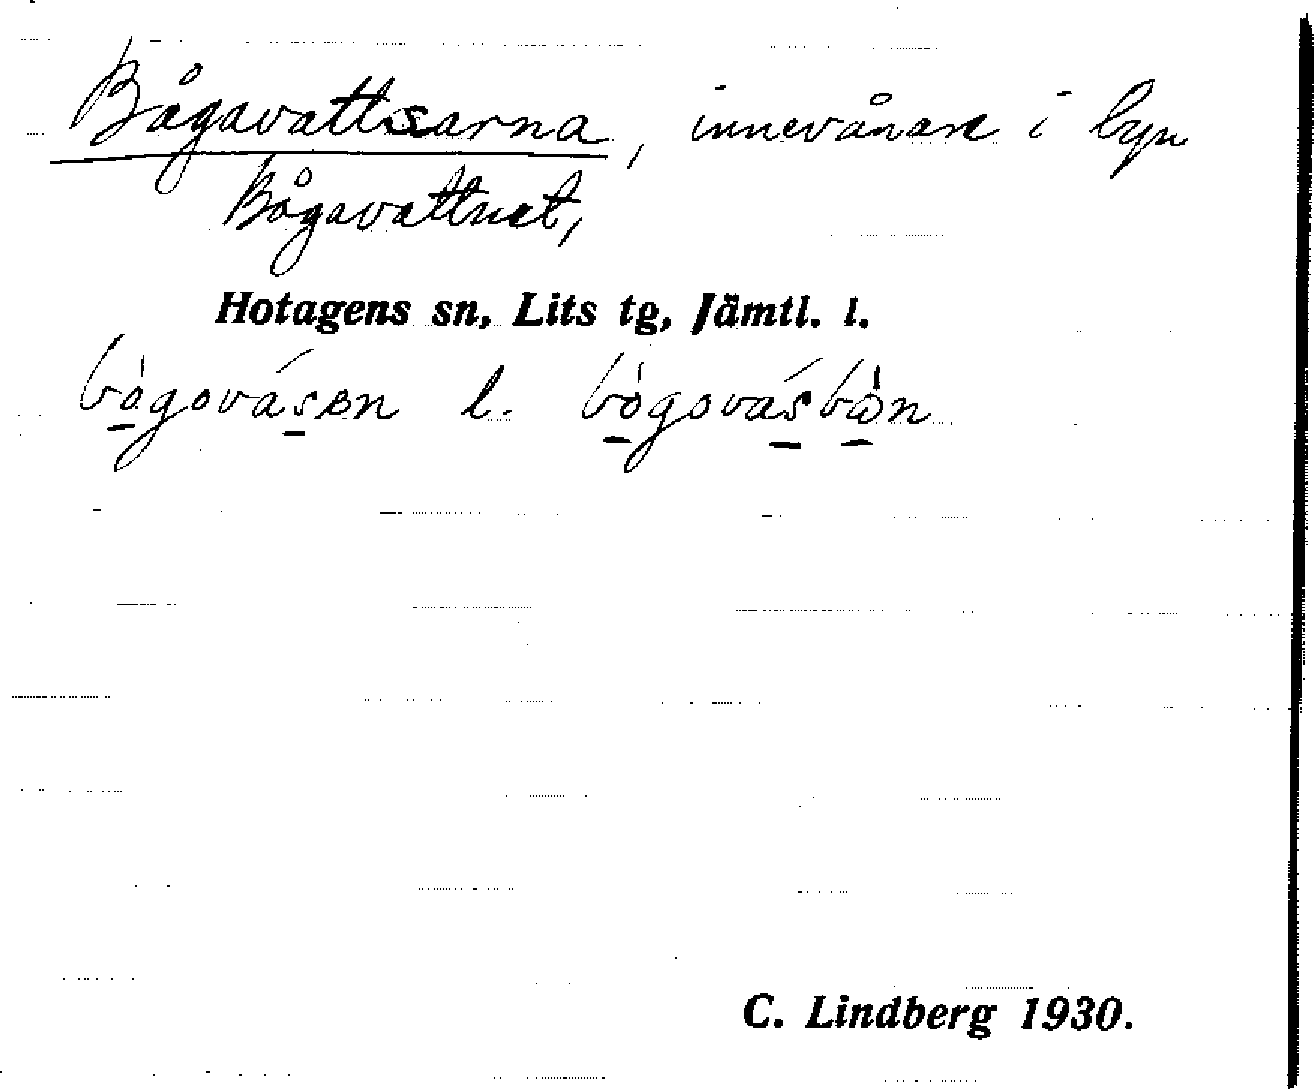 Bågavattsarna, innevånare i byn
Bågavattnet,
Hotagens sn, Lits tg, Jämtl. l.
bògovásen l. bògovásbòn
C. Lindberg 1930.